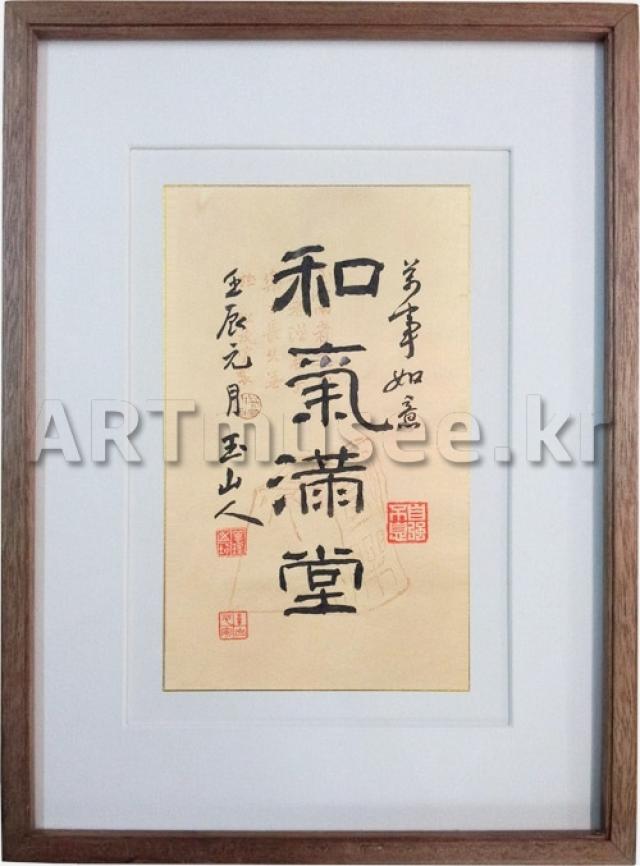 萬事如意
和氣滿堂
壬辰元月玉山人
自強不息
ARTmusee.kr